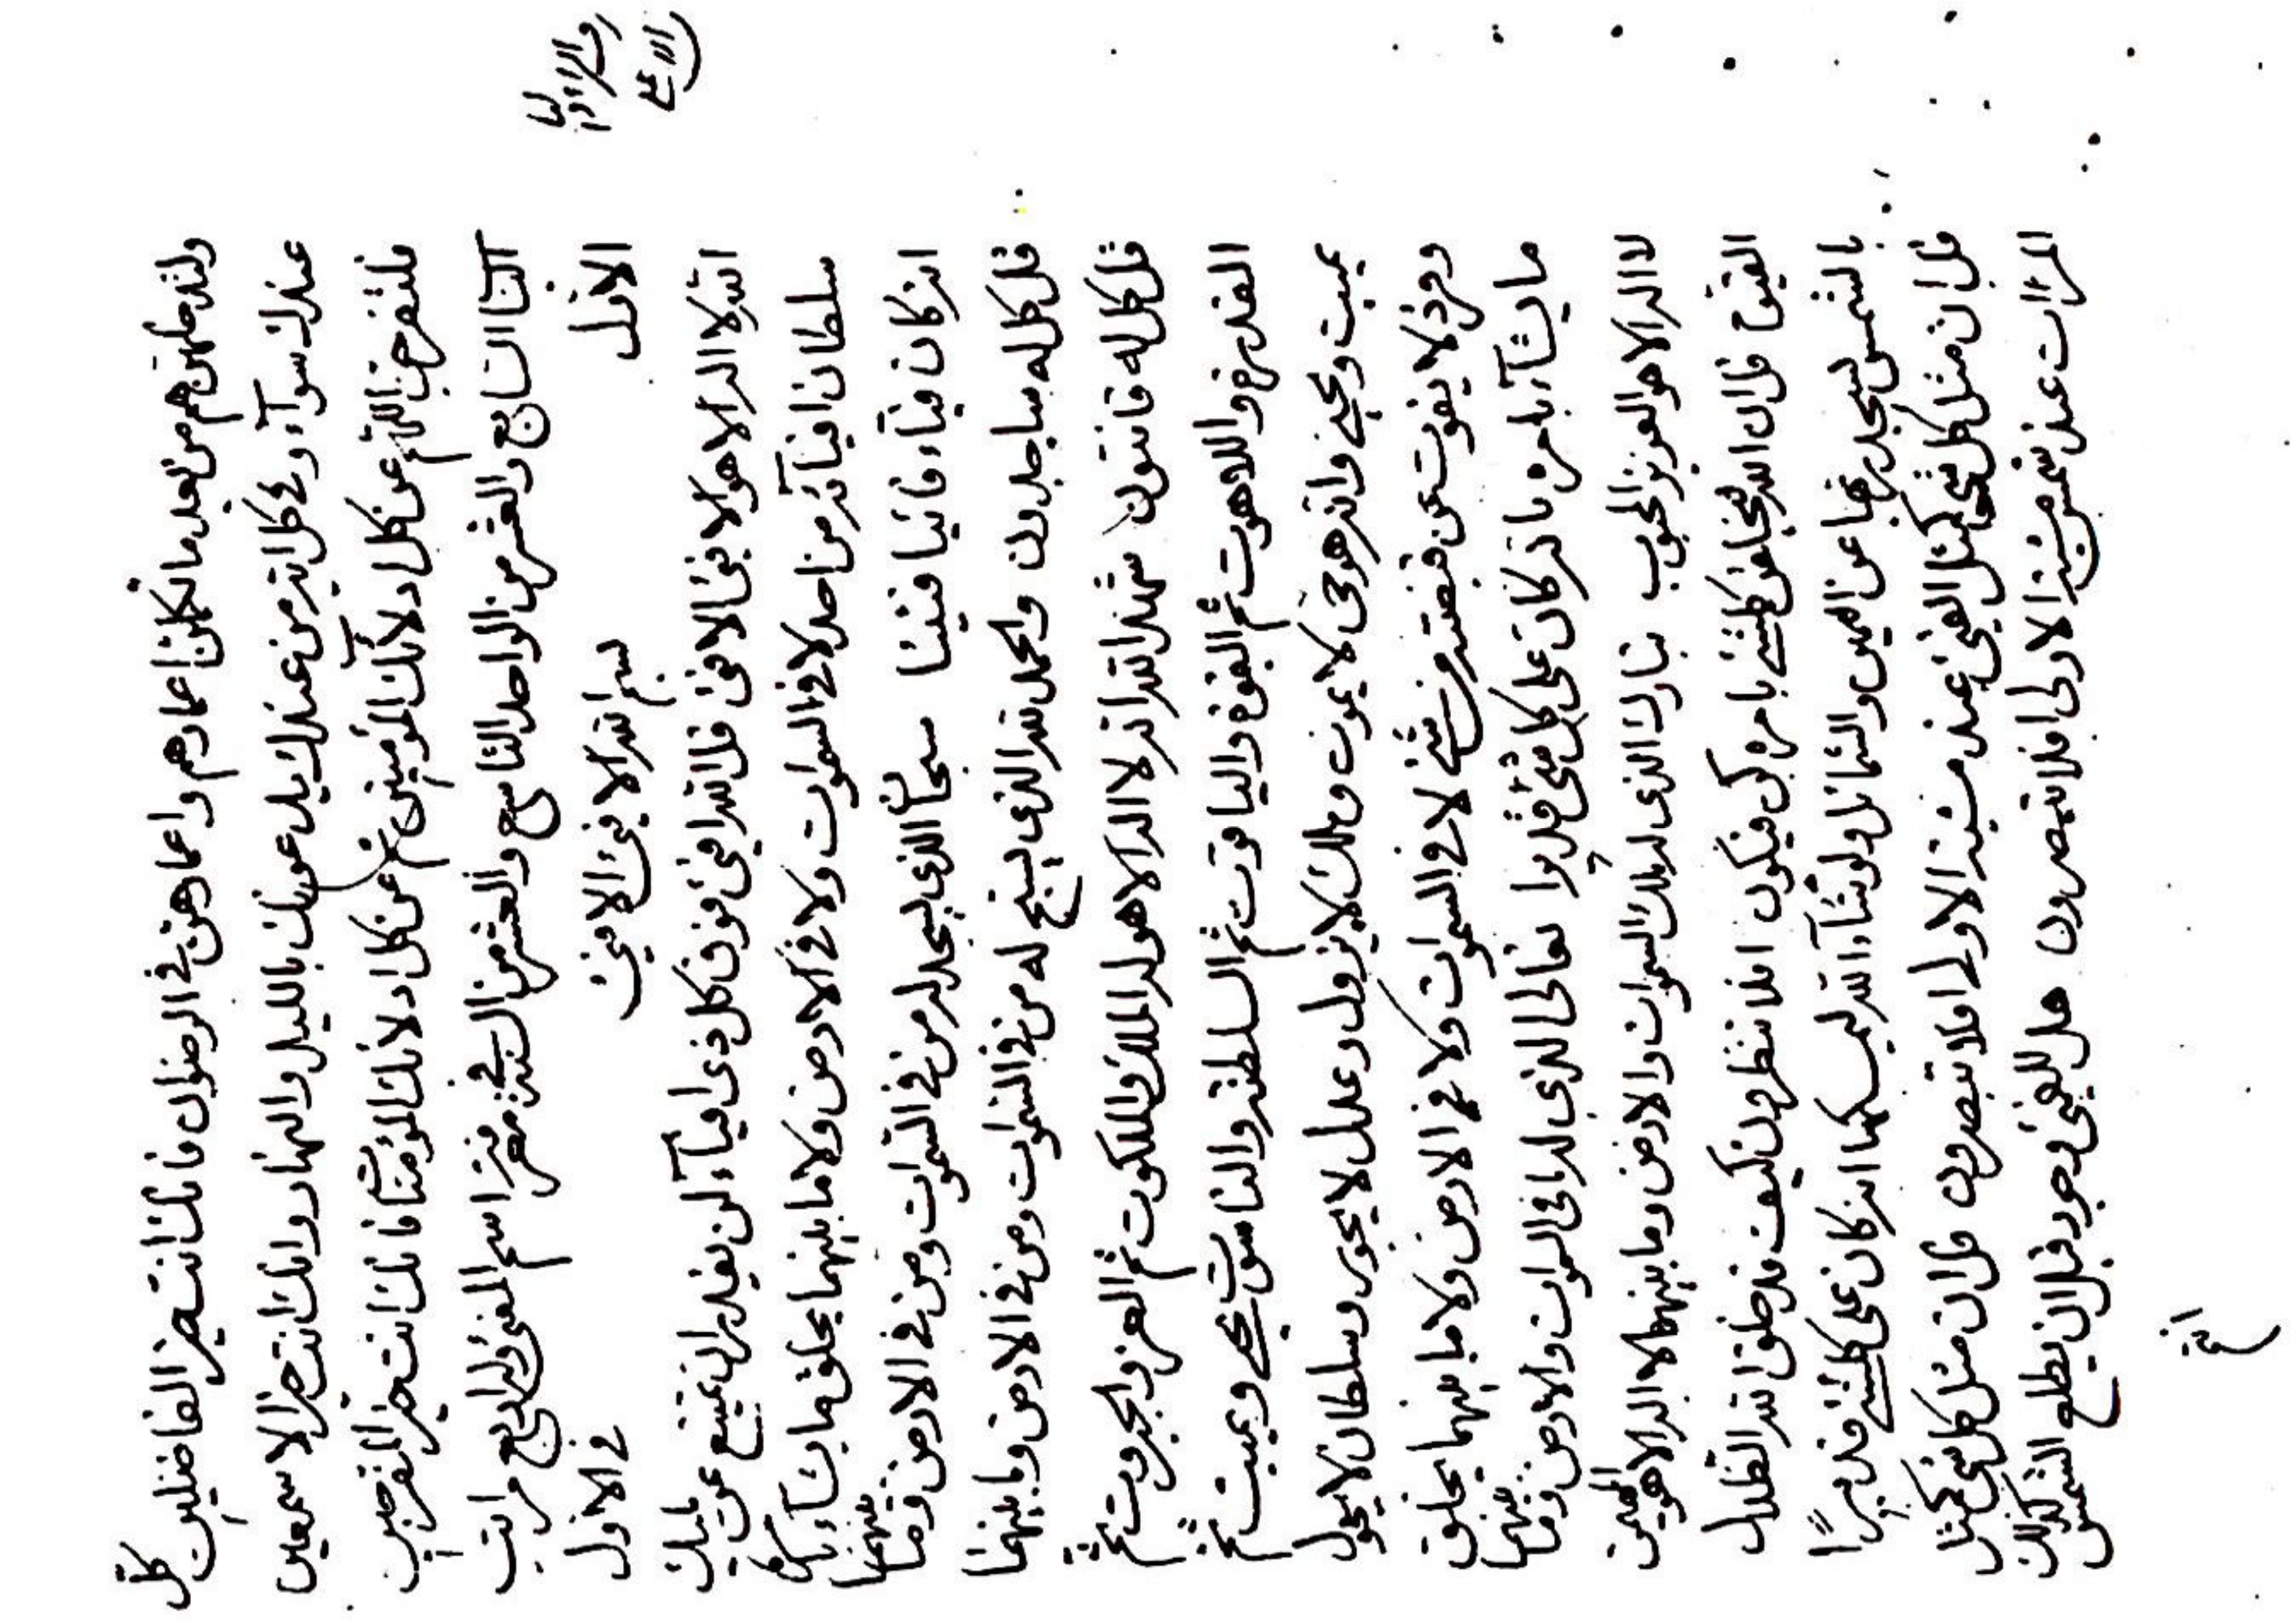 ولتدخلنهن هم من بعد ما تكملن اعمارهم واعمارهن في الرضوان فانك انت خير الفاضلين كل
عندك سوآء وفى كل اية من عندك يدل عونك بالليل والنهار وانك انت خير الاسمعين
فلتفرجن اللهم عن كل ادلآئك المؤمنين ثم عن كل ادلائك المؤمنات فانك انت خير المفرجين
الباب السابع والعشر من الواحد التاسع والعشر من السنة في معرفة اسم الفئ وله اربع مراتب
الاول في الاول
بسم الله الافيئ الافيئ
الله لا اله الا هو الافيئ الافيئ قل الله افيئ فوق كل ذى افيآء لن يقدر ان يمتنع عن مليك
سلطان افيآئه من احد لا في السموات ولا في الارض ولا ما بينهما يخلق ما يشآء بامره
انه كان فيآء فائيا فيئيا سبحان الذي يسجد له من في السموات ومن في الارض وما بينهما
قل كل له ساجدون والحمد لله الذي يسبح له من في السموات ومن في الارض وما بينهما
قل كل له قانتون شهد الله انه لا اله الا هو له الملك والملكوت ثم العز والجبروت ثم
القدرة واللاهوت ثم القوة والياقوت ثم السلطنة والناسوت يحيى ويميت ثم
يميت ويحيي وانه هو حى لا يموت وملك لا يزول وعدل لا يجور وسلطان لا يحول
وفرد لا يفوت عن قبضته من شئ لا في السموات ولا في الارض ولا ما بينهما يخلق
ما يشآء بامره انه كان على كل شئ قديرا تعالى الذي له ما في السموات والارض وما بينهما
لا اله الا هو العزيز المحبوب تبارك الذى له ملك السموات والارض وما بينهما لا اله الا هو المهيمن
القيوم قل ان الله يخلق كل شئ بامره كن فيكون افلا تنظرون كيف قد خلق الله الظلال
بالشمس لتسجد ربها عن اليمين والشمائل ولو شآء الله ليسكنها انه كان على كل شئ قديرًا
قل ان مثل كل شئ كمثل الفئ عند مشية الاولى افلا تبصرون قل ان مثل كل شئ كمثل
المرآت عند شمس مشية الاولى افلا تبصرون هل للفئ وجود قبل ان يطلع الشمس كذلك